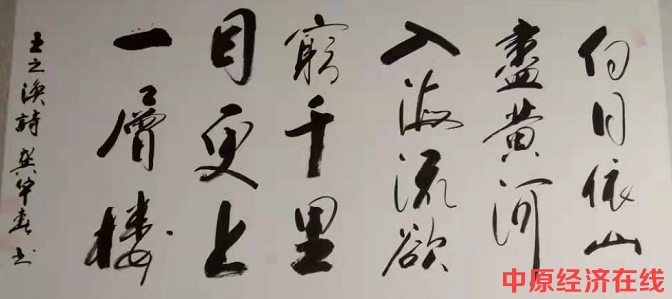 白日依山
盡黄河
入海流欲
窮千里
目更上
一層楼
王之涣詩 华春书
中原经济在线